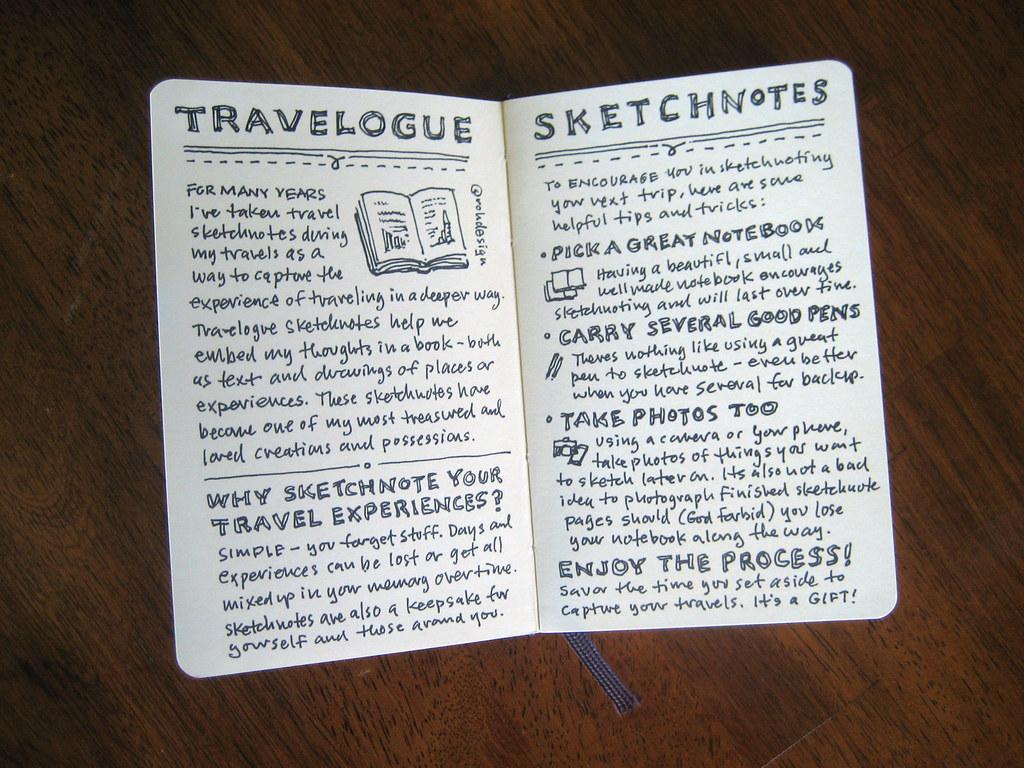 TRAVELOGUE
FOR MANY YEARS
I've taken travel
sketchnotes during
my travels as a
way to capture the
experience of traveling in a deeper way.
@rohdesign
Travelogue sketchnotes help me
embed my thoughts in a book - both
as text and drawings of places or
experiences. These sketchnotes have
become one of my most treasured and
loved creations and possessions.
WHY SKETCHNOTE YOUR
TRAVEL EXPERIENCES?
SIMPLE - you forget stuff. Days and
experiences can be lost or get all
mixed up in your memory over time.
Sketchnotes are also a keepsake for
yourself and those around you.
SKETCHNOTES
TO ENCOURAGE you in sketchnoting
your next trip, here are some
helpful tips and tricks:
• PICK A GREAT NOTEBOOK
Having a beautifl, small and
well made notebook encourages
sketchnoting and will last over time.
• CARRY SEVERAL GOOD PENS
Theres nothing like using a great
pen to sketchnote - even better
when you have several for backup.
• TAKE PHOTOS TOO
Using a camera or your phone,
take photos of things you want
to sketch later on. Its also not a bad
idea to photograph finished sketchnote
pages should (God forbid) you lose
your notebook along the way.
ENJOY THE PROCESS!
Savor the time you set aside to
capture your travels. It's a GIFT!